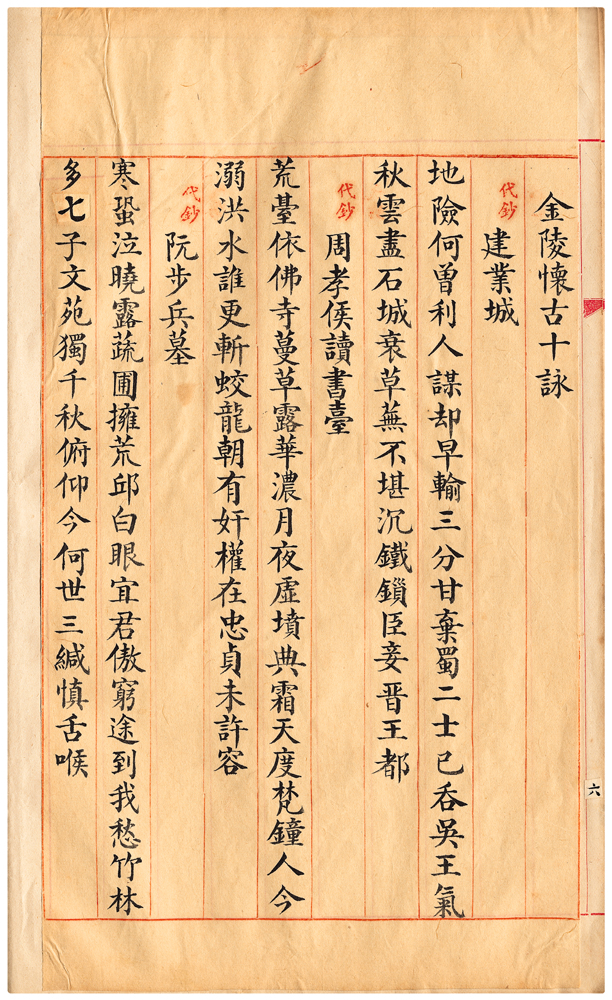 金陵懷古十詠
代鈔
建業城
地險何曾利人謀却早輸三分甘棄蜀二士已吞吳王氣
秋雲盡石城衰草蕪不堪沉鐵鎖臣妾晋王都
代鈔
周孝侯讀書臺
荒臺依佛寺蔓草露華濃月夜虛墳典霜天度梵鐘人今
溺洪水誰更斬蛟龍朝有奸權在忠貞未許容
代鈔
阮步兵墓
寒蛩泣曉露蔬圃擁荒邱白眼宜君傲窮途到我愁竹林
多七子文苑獨千秋俯仰今何世三緘慎舌喉
六